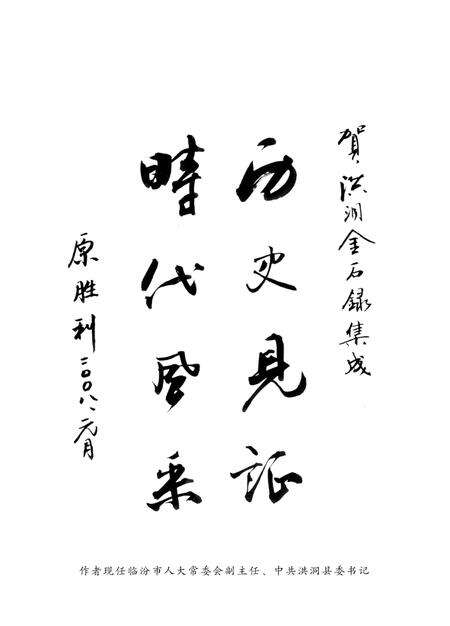 賀洪洞金石録集成
历史见证
時代風采
原胜利二〇〇八、元月
作者现任临汾市人大常委会副主任、中共洪洞县委书记